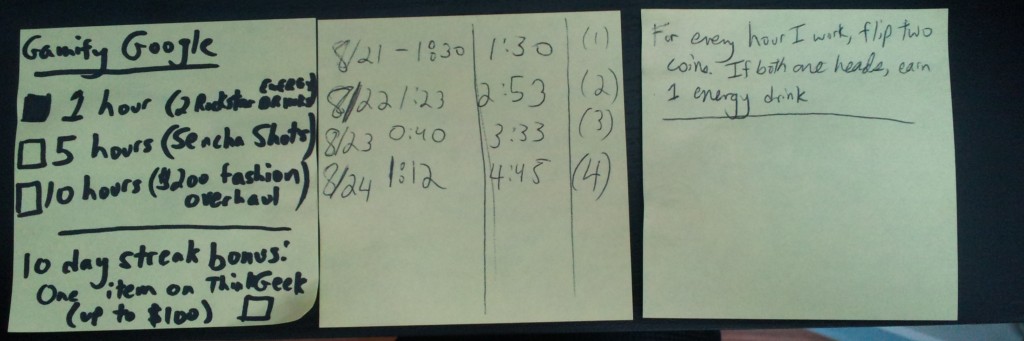 Gamify Google
1 hour (2 Rockstar ENERGY DRINKS)
5 hours (Sencha Shots)
10 hours ($200 fashion
overhaul)
10 day streak bonus:
One item on ThinkGeek
(up to $100)
8/21 - 1:30 1:30 (1)
8/22 1:23 2:53 (2)
8/23 0:40 3:33 (3)
8/24 1:12 4:45 (4)
For every hour I work, flip two
coins. If both are heads, earn
1 energy drink